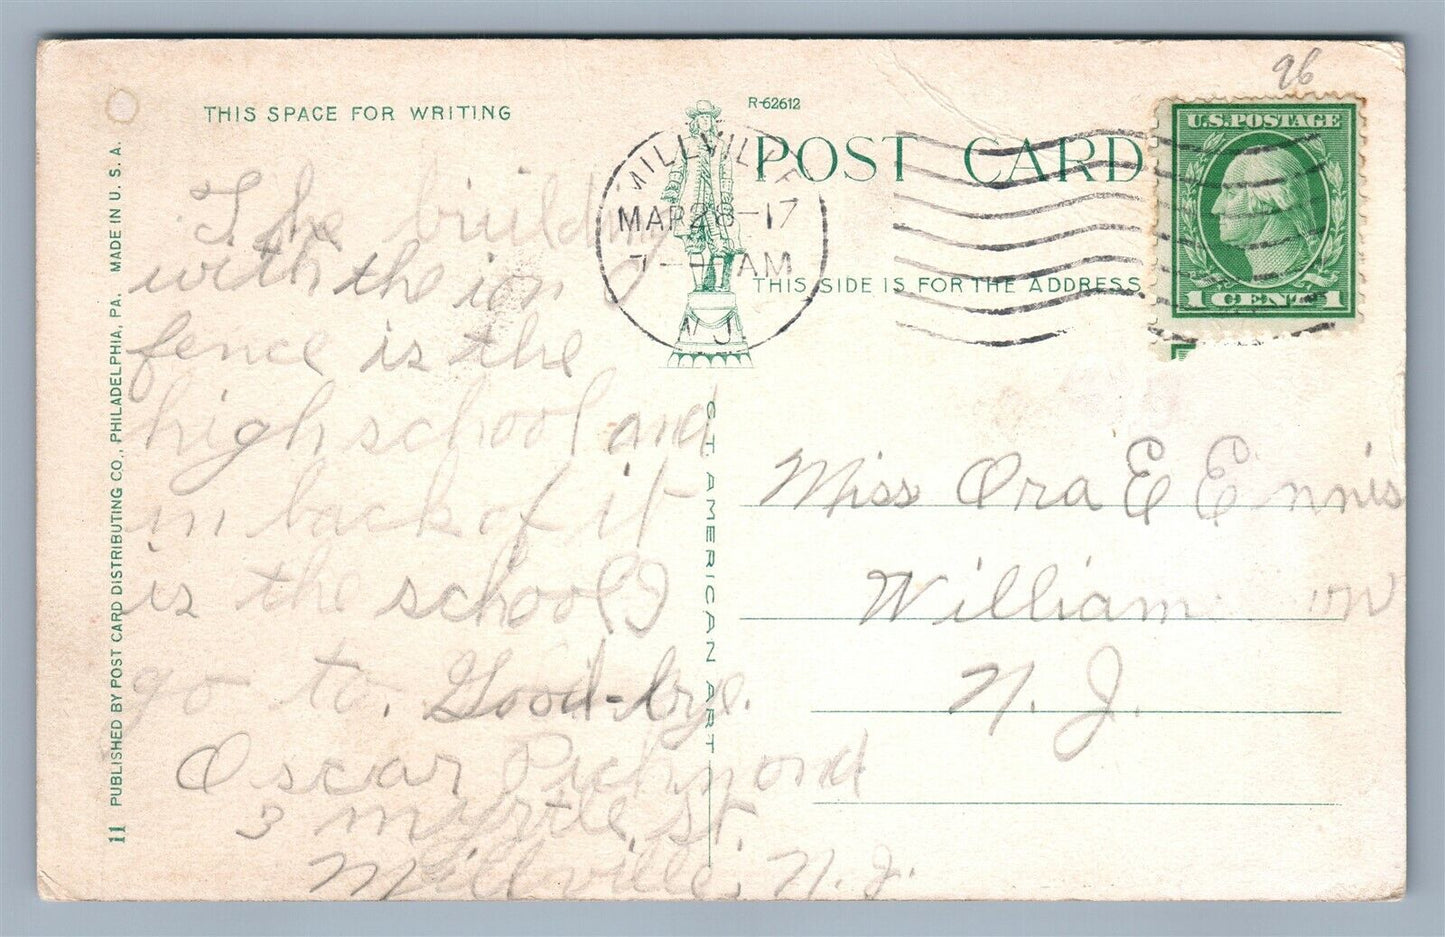 96
THIS SPACE FOR WRITING
R-62612
POST CARD
THIS SIDE IS FOR THE ADDRESS
U.S. POSTAGE
1 CENT 1
MILLVILLE
MAR 28-17
AM
N.J.
The building
with the ion
fence is the
high school and
in back of it
is the school I
go to. Good-bye.
Oscar Richmond
3 myrtle, st.
Millville, N. J.
Miss Ora E Ennis
William
N. J.
CT. AMERICAN ART
11 PUBLISHED BY POST CARD DISTRIBUTING CO., PHILADELPHIA, PA. MADE IN U. S. A.